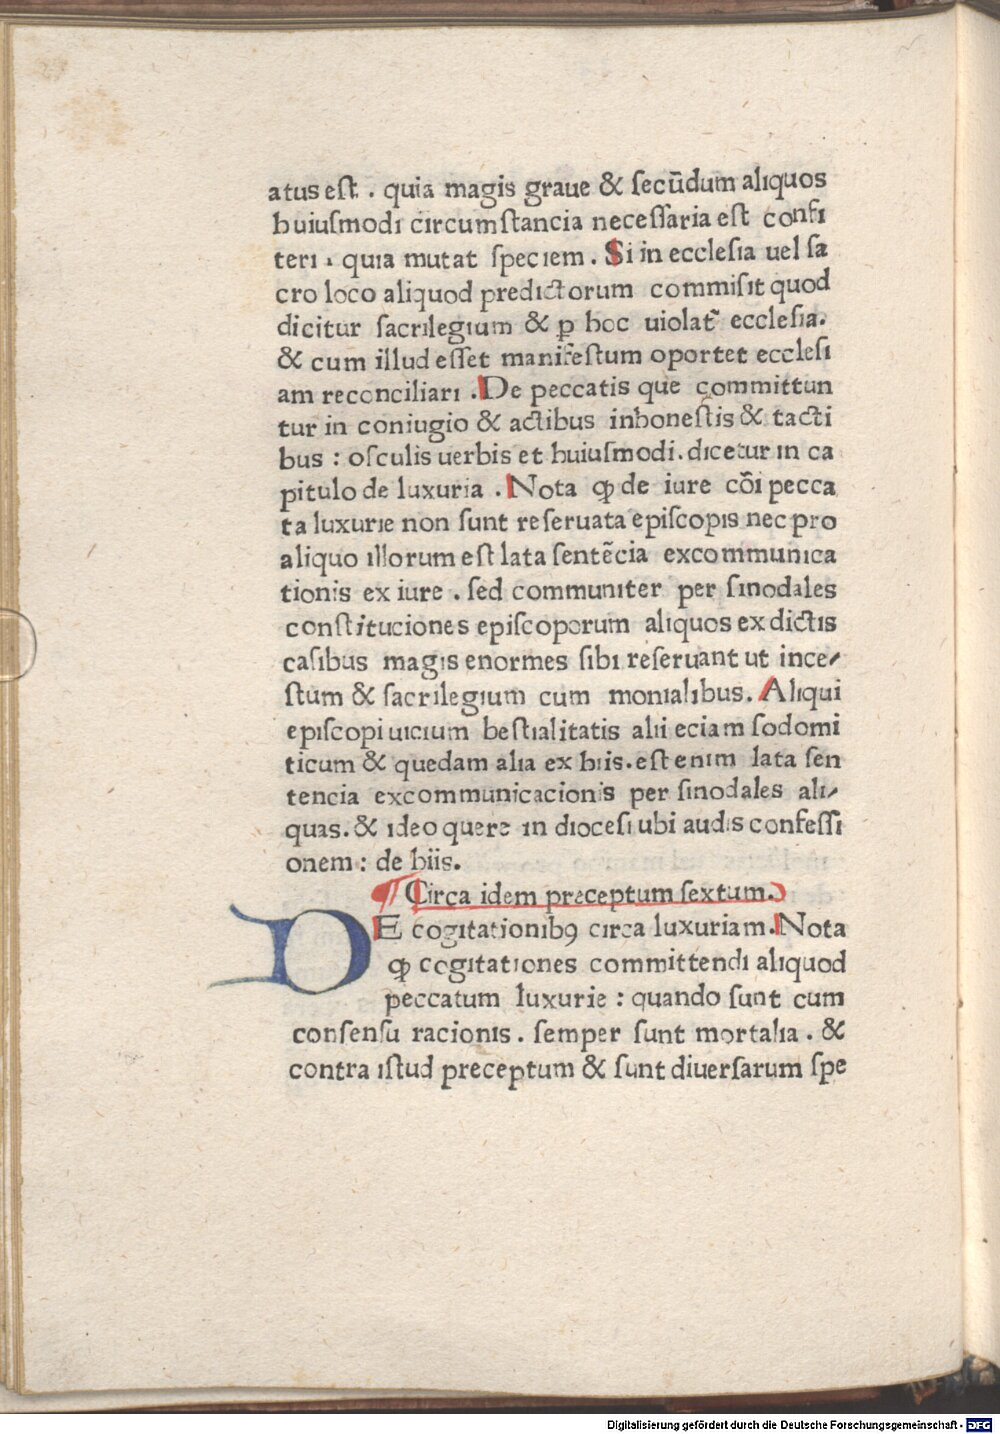 atus eſt . quia magis graue & ſecūdum aliquos
huiuſmodi circumſtancia neceſſaria eſt confi
teri . quia mutat ſpeciem . Si in eccleſia uel ſa
cro loco aliquod predictorum commiſit quod
dicitur ſacrilegium & ꝑ hoc uiolat᷑ eccleſia.
& cum illud eſſet manifeſtum oportet eccleſi
am reconciliari . De peccatis que committun
tur in coniugio & actibus inhoneſtis & tacti
bus : oſculis uerbis et huiuſmodi . dicetur in ca
pitulo de luxuria . Nota ꝙ de iure cōi pecca
ta luxurie non ſunt reſeruata epiſcopis nec pro
aliquo illorum eſt lata ſentēcia excommunica
tionis ex iure . ſed communiter per ſinodales
conſtituciones epiſcoporum aliquos ex dictis
caſibus magis enormes ſibi reſeruant ut ince⸗
ſtum & ſacrilegium cum monialibus. Aliqui
epiſcopi uicium beſtialitatis alii eciam ſodomi
ticum & quedam alia ex hiis . eſt enim lata ſen
tencia excommunicacionis per ſinodales ali⸗
quas. & ideo quere in dioceſi ubi audis confeſſi
onem : de hiis.
¶ Circa idem preceptum ſextum.
DE cogitationibꝯ circa luxuriam. Nota
ꝙ cogitationes committendi aliquod
peccatum luxurie : quando ſunt cum
conſenſu racionis . ſemper ſunt mortalia . &
contra iſtud preceptum & ſunt diuerſarum ſpe
Digitalisierung gefördert durch die Deutsche Forschungsgemeinschaft - DFG